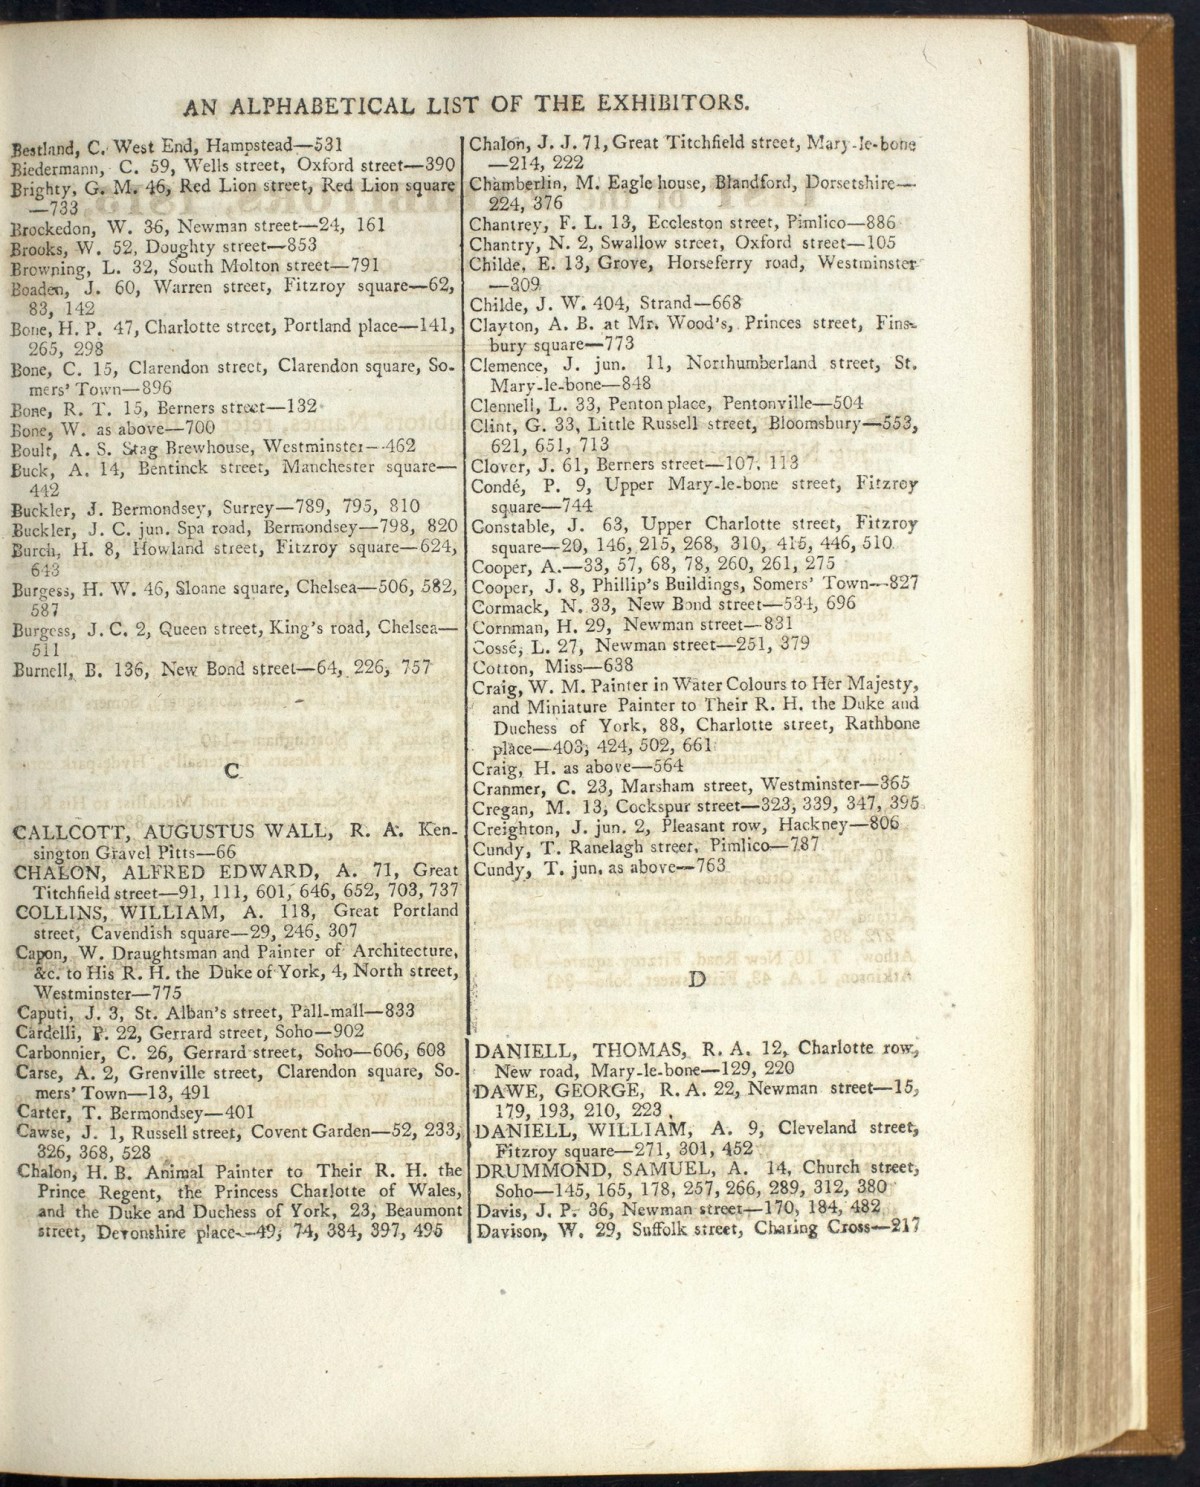 AN ALPHABETICAL LIST OF THE EXHIBITORS.
Bestland, C. West End, Hampstead—531
Biedermann, C. 59, Wells street, Oxford street—390
Brighty, G. M. 46, Red Lion street, Red Lion square
—733
Brockedon, W. 36, Newman street—24, 161
Brooks, W. 52, Doughty street—853
Browning, L. 32, South Molton street—791
Boaden, J. 60, Warren street, Fitzroy square—62,
83, 142
Bone, H. P. 47, Charlotte street, Portland place—141,
265, 298
Bone, C. 15, Clarendon street, Clarendon square, So-
mers' Town—896
Bone, R. T. 15, Berners street—132
Bone, W. as above—700
Boult, A. S. Stag Brewhouse, Westminster—462
Buck, A. 14, Bentinck street, Manchester square—
442
Buckler, J. Bermondsey, Surrey—789, 795, 810
Buckler, J. C. jun. Spa road, Bermondsey—798, 820
Burch, H. 8, Howland street, Fitzroy square—624,
643
Burgess, H. W. 46, Sloane square, Chelsea—506, 582,
587
Burgess, J. C. 2, Queen street, King's road, Chelsea—
511
Burnell, B. 136, New Bond street—64, 226, 757
C
CALLCOTT, AUGUSTUS WALL, R. A. Ken-
sington Gravel Pitts—66
CHALON, ALFRED EDWARD, A. 71, Great
Titchfield street—91, 111, 601, 646, 652, 703, 737
COLLINS, WILLIAM, A. 118, Great Portland
street, Cavendish square—29, 246, 307
Capon, W. Draughtsman and Painter of Architecture,
&c. to His R. H. the Duke of York, 4, North street,
Westminster—775
Caputi, J. 3, St. Alban's street, Pall-mall—833
Cardelli, P. 22, Gerrard street, Soho—902
Carbonnier, C. 26, Gerrard street, Soho—606, 608
Carse, A. 2, Grenville street, Clarendon square, So-
mers' Town—13, 491
Carter, T. Bermondsey—401
Cawse, J. 1, Russell street, Covent Garden—52, 233,
326, 368, 528
Chalon, H. B. Animal Painter to Their R. H. the
Prince Regent, the Princess Charlotte of Wales,
and the Duke and Duchess of York, 23, Beaumont
street, Devonshire place—49, 74, 384, 397, 495
Chalon, J. J. 71, Great Titchfield street, Mary-le-bone
—214, 222
Chamberlin, M. Eagle house, Blandford, Dorsetshire—
224, 376
Chantrey, F. L. 13, Eccleston street, Pimlico—886
Chantry, N. 2, Swallow street, Oxford street—105
Childe, E. 13, Grove, Horseferry road, Westminster
—309
Childe, J. W. 404, Strand—668
Clayton, A. B. at Mr. Wood's, Princes street, Fins-
bury square—773
Clemence, J. jun. 11, Northumberland street, St.
Mary-le-bone—848
Clennell, L. 33, Penton place, Pentonville—504
Clint, G. 33, Little Russell street, Bloomsbury—553,
621, 651, 713
Clover, J. 61, Berners street—107, 113
Condé, P. 9, Upper Mary-le-bone street, Fitzroy
square—744
Constable, J. 63, Upper Charlotte street, Fitzroy
square—20, 146, 215, 268, 310, 415, 446, 510
Cooper, A.—33, 57, 68, 78, 260, 261, 275
Cooper, J. 8, Phillip's Buildings, Somers' Town—827
Cormack, N. 33, New Bond street—534, 696
Cornman, H. 29, Newman street—831
Cossé, L. 27, Newman street—251, 379
Cotton, Miss—638
Craig, W. M. Painter in Water Colours to Her Majesty,
and Miniature Painter to Their R. H. the Duke and
Duchess of York, 88, Charlotte street, Rathbone
place—403, 424, 502, 661
Craig, H. as above—564
Cranmer, C. 23, Marsham street, Westminster—365
Cregan, M. 13, Cockspur street—323, 339, 347, 395
Creighton, J. jun. 2, Pleasant row, Hackney—806
Cundy, T. Ranelagh street, Pimlico—787
Cundy, T. jun. as above—763
D
DANIELL, THOMAS, R. A. 12, Charlotte row,
New road, Mary-le-bone—129, 220
DAWE, GEORGE, R. A. 22, Newman street—15,
179, 193, 210, 223
DANIELL, WILLIAM, A. 9, Cleveland street,
Fitzroy square—271, 301, 452
DRUMMOND, SAMUEL, A. 14, Church street,
Soho—145, 165, 178, 257, 266, 289, 312, 380
Davis, J. P. 36, Newman street—170, 184, 482
Davison, W. 29, Suffolk street, Charing Cross—217